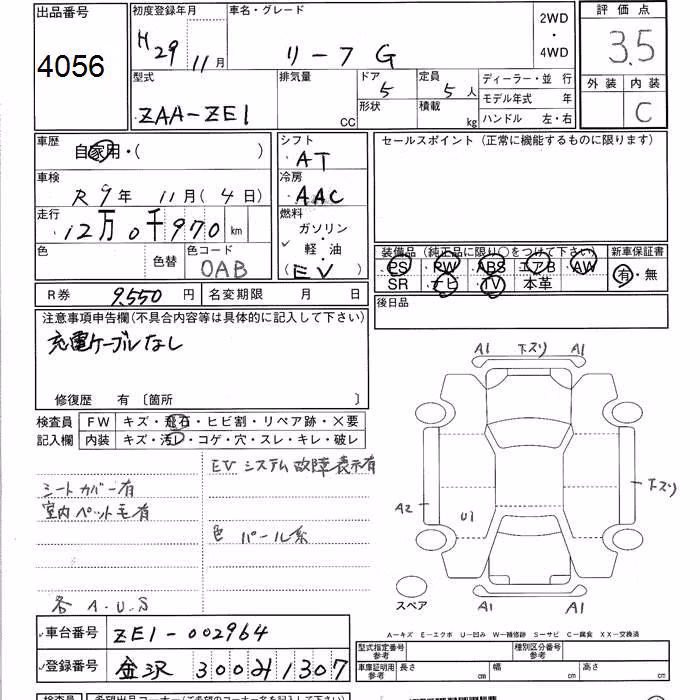 出品番号 初度登録年月 車名・グレード 2WD ・ 4WD 評価点
4056 H29 11月 リーフ G 3.5
型式 排気量 ドア 定員 ディーラー・並 行 外装 内装
ZAA-ZE1 CC 5 5人 モデル年式 年 C
形状 積載 kg ハンドル 左・右
車歴 シフト セールスポイント (正常に機能するものに限ります)
自家用・( ) AT
車検 冷房
R 9年 11月( 4日) AAC
走行 燃料
12万0千970 km ガソリン
色 色替 色コード 軽・油 装備品 (純正品に限り○をつけて下さい) 新車保証書
0AB (EV) PS・PW・ABS・エアB・AW 有・無
SR・ナビ・TV・本革
R券 9,550 円 名変期限 月 日 後日品
注意事項申告欄(不具合内容等は具体的に記入して下さい)
充電ケーブルなし
A1 下スリ A1
修復歴 有 〔箇所 〕
検査員 FW キズ・飛石・ヒビ割・リペア跡・×要
記入欄 内装 キズ・汚レ・コゲ・穴・スレ・キレ・破レ
EVシステム故障表示有
シートカバー有 下スリ
室内ペット毛有 A2 U1
色 パール系
各 A.U.S スペア A1 A1
車台番号 ZE1-002964
A－キズ E－エクボ U－凹み W－補修跡 S－サビ C－腐食 XX－交換済
型式指定番号 参考 種別区分番号 参考
登録番号 金沢 300み1307
車庫証明用 参考 長さ cm 幅 cm 高さ cm